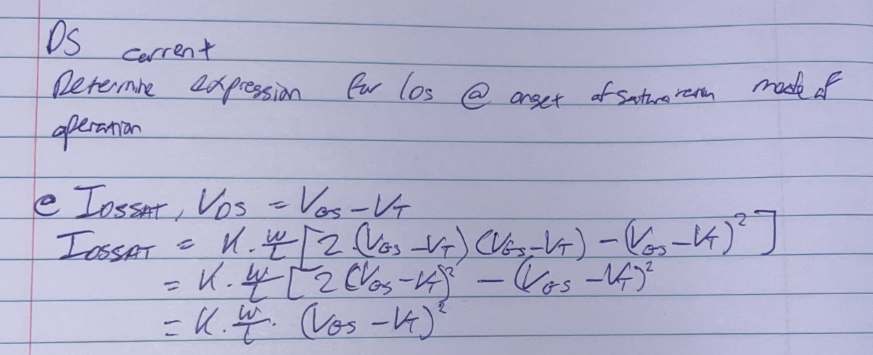 DS current
Determine expression for IDS @ onset of saturation mode of
operation
@ IDSSAT, VDS = VGS - VT
IDSSAT = K. W/L [2 (VGS - VT) (VGS - VT) - (VGS - VT)²]
= K. W/L [2 (VGS - VT)² - (VGS - VT)²
= K. W/L. (VGS - VT)²